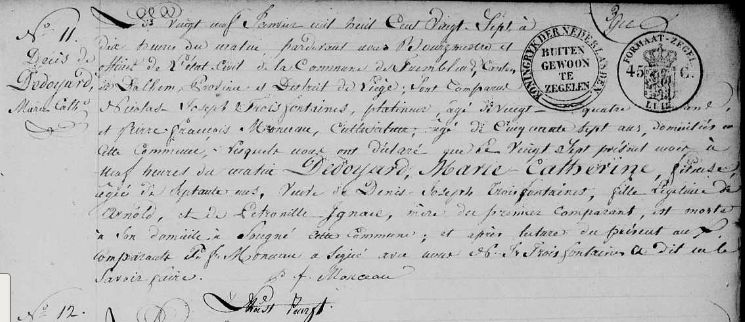 N.° 11.
Décès de
Dédoyard,
Marie Cath.e
Le Vingt neuf Janvier mil huit Cent Vingt-Sept, à
dix heures du matin, pardevant nous Bourgmestre et
officier de l'état Civil de la Commune de Trembleur, Canton
de Dalhem, Province et District de Liège; sont Comparus
Nicolas Joseph Troisfontaines, platineur, âgé de vingt quatre ans,
et Pierre François Monceau, Cultivateur, âgé de Cinquante Sept ans, domiciliés en
cette Commune, lesquels nous ont déclaré que le Vingt Sept présent mois à
neuf heures du matin Dédoyard, Marie-Catherine, fileuse,
âgée de septante ans, Veuve de Denis-Joseph Troisfontaines, fille légitime de
Arnold, et de Pétronille Ignace, mère du premier comparant, est morte
à son domicile à Feigné cette Commune; et après lecture du présent aux
comparants P. f. Monceau a signé avec nous N. J. Troisfontaines a dit ne le
Savoir faire.
P. f. Monceau
KONINGRYK DER NEDERLANDEN
BUITEN
GEWOON
TE
ZEGELEN
FORMAAT-ZEGEL
45 C.
LUIK
N.° 12.